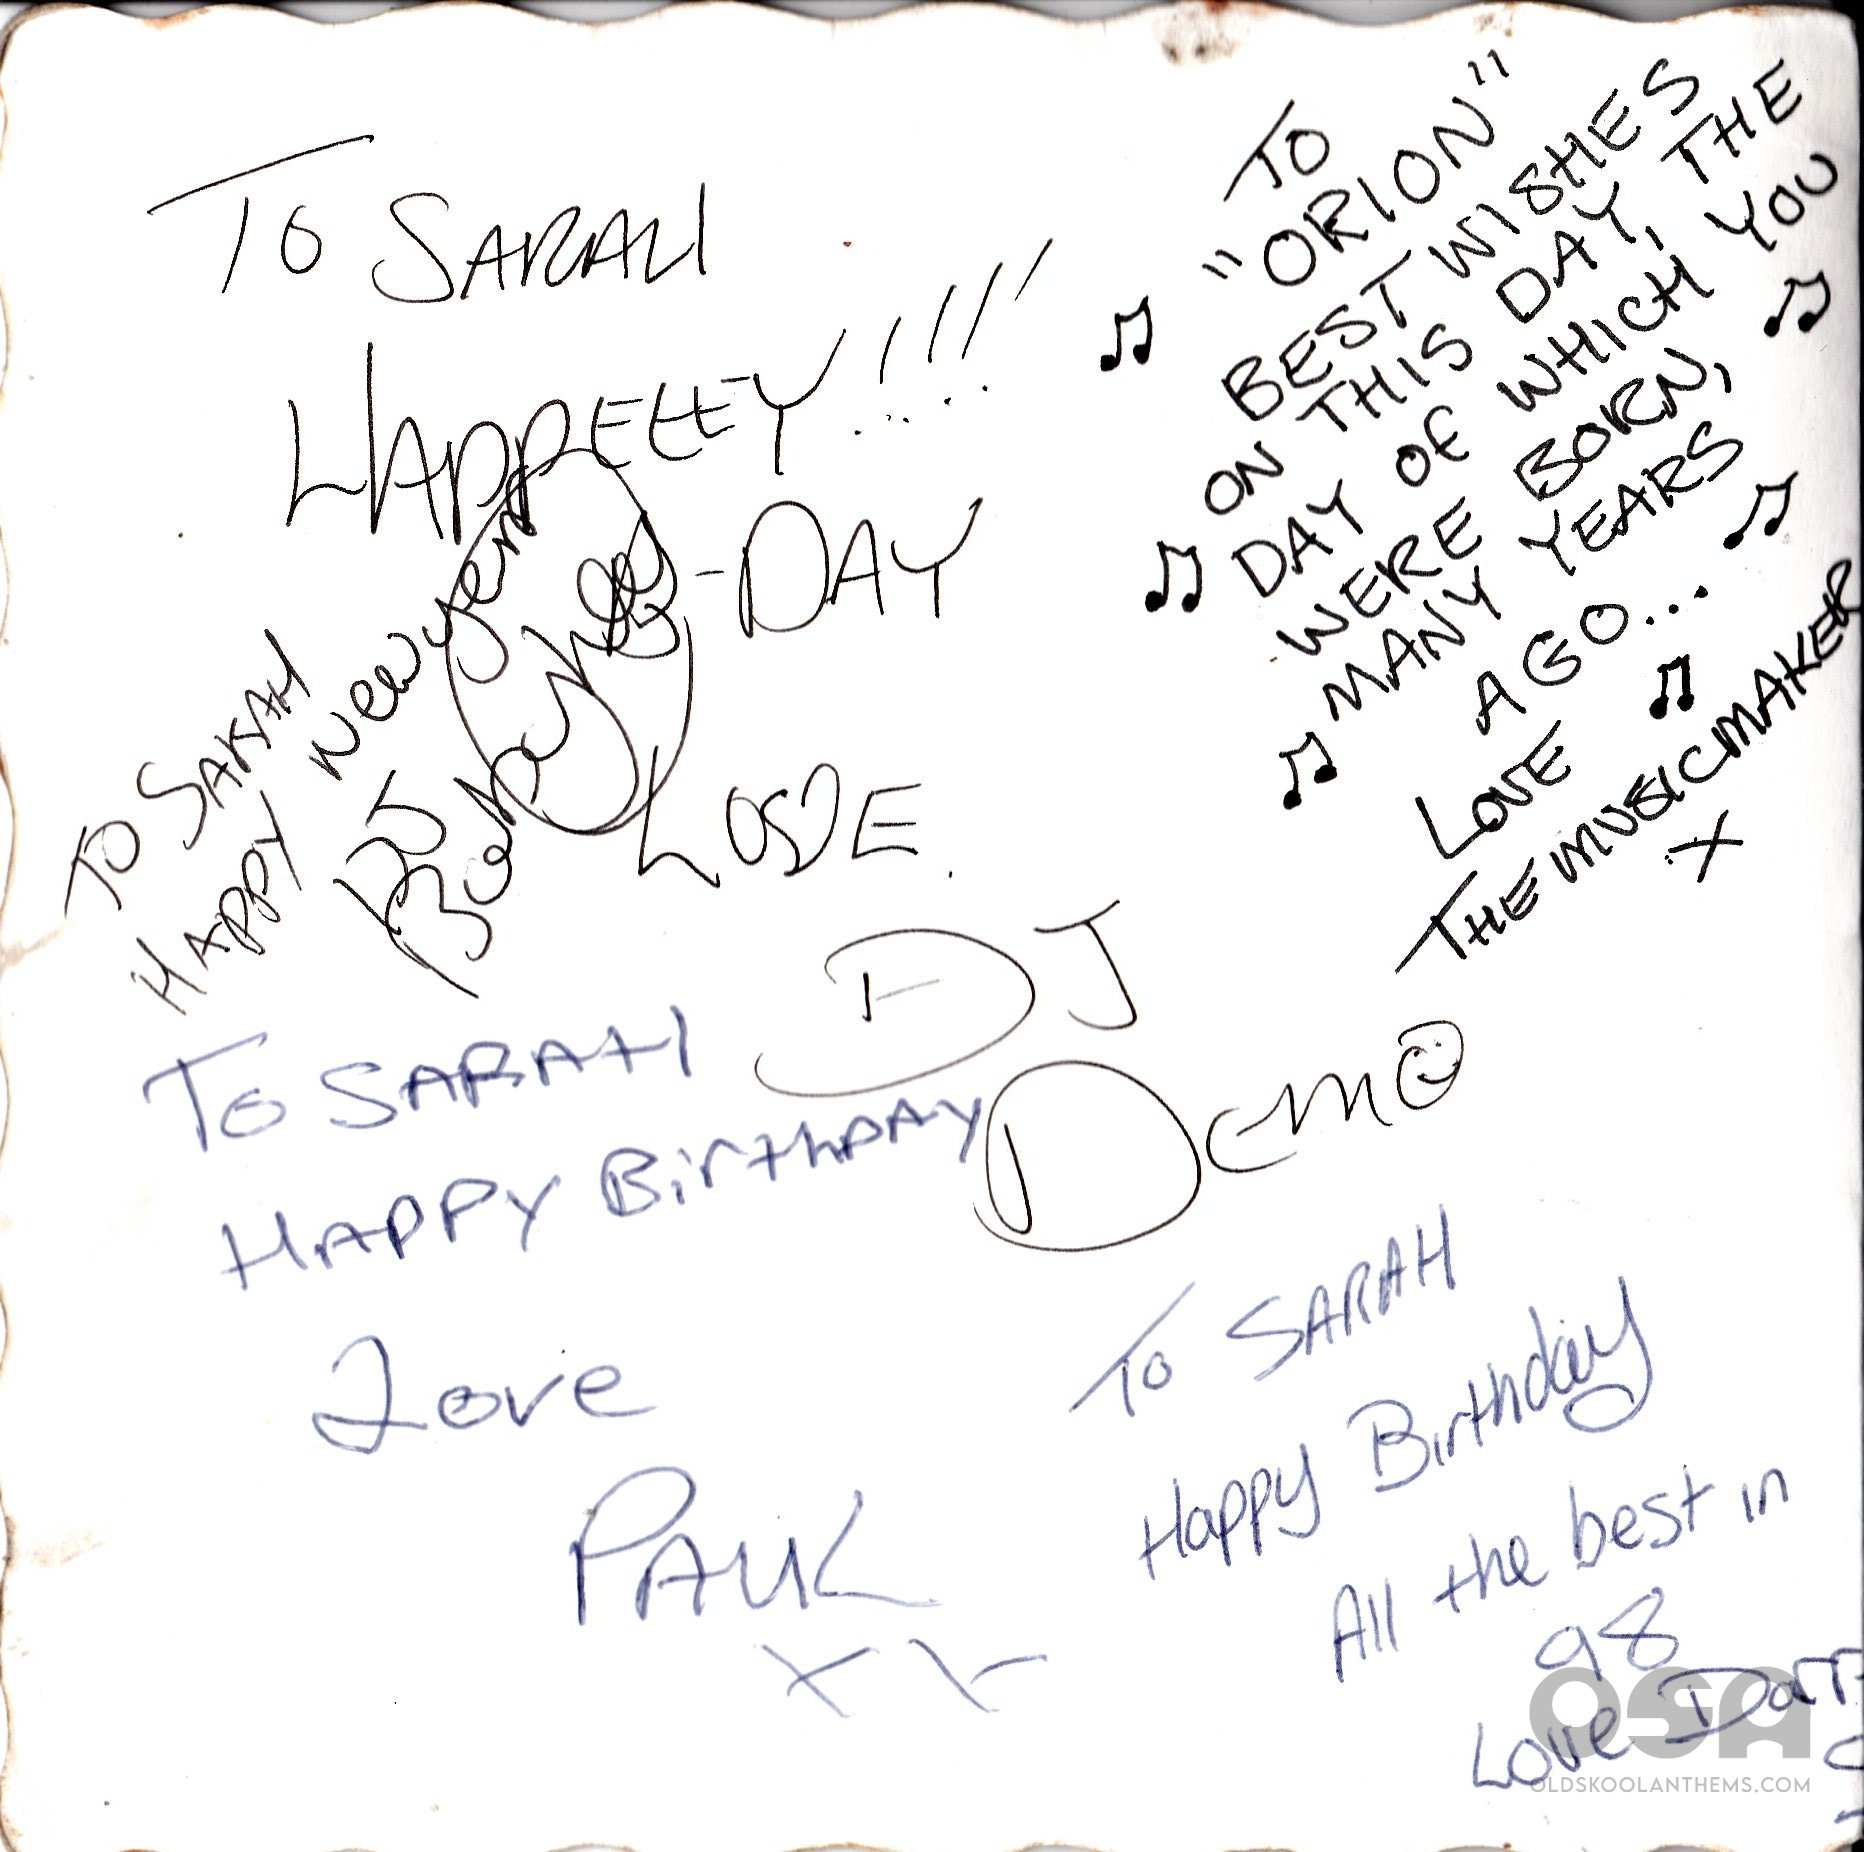 TO SARAH
HAPPEEEY!!!!
-DAY
LOVE
DJ
DEMO
TO
"ORION"
BEST WISHES
ON THIS DAY, THE
DAY OF WHICH YOU
WERE BORN,
MANY YEARS
AGO...
LOVE
THEMUSICMAKER
X
TO SARAH
HAPPY New year
DJ
TO SARAH
HAPPY BirthDAY
Love
PAUL
XX
To SARAH
Happy Birthday
All the best in
98
Love
OSA
OLDSKOOLANTHEMS.COM